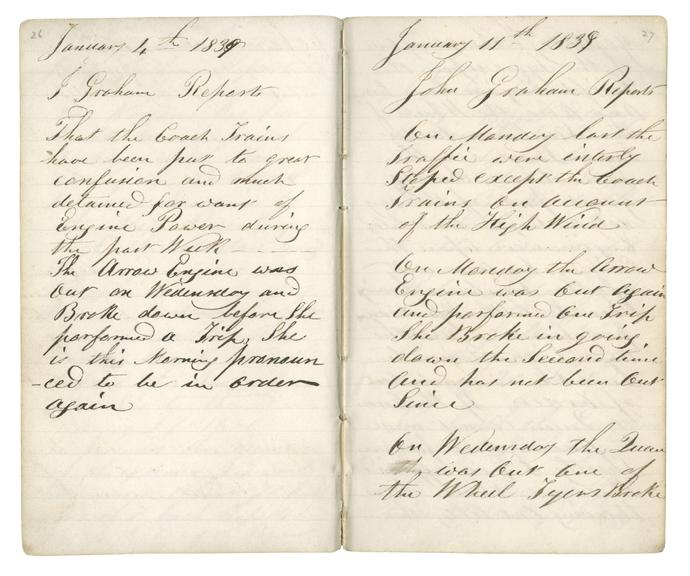 26
January 4th 1839
J Graham Reports
That the Coach Trains
have been put to great
confusion and much
detained for want of
Engine Power during
the past Week
The Arrow Engine was
out on Wedensday and
Broke down before She
performed a Trip, She
is this Morning pronoun
-ced to be in order
again
27
January 11th 1839
John Graham Reports
On Monday last the
Traffic were interly
Stoped except the Coach
Trains on account
of the High Wind
On Monday the Arrow
Engine was out again
and performed one Trip
She Broke in going
down the Second time
and has not been out
Since
On Wedensday the
was out one of
the Wheel Tyers Broke